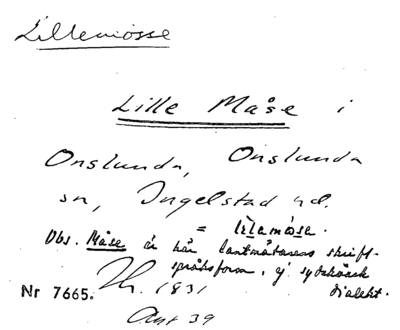 Lillemosse
Lille Måse i
Onslunda, Onslunda
sn, Ingelstad hd.
= lìlamása.
Obs. Måse är här lantmätarens skrift-
språksform, ej sydskånsk
dialekt.
Nr 7665. Th. 1831
Ant 39